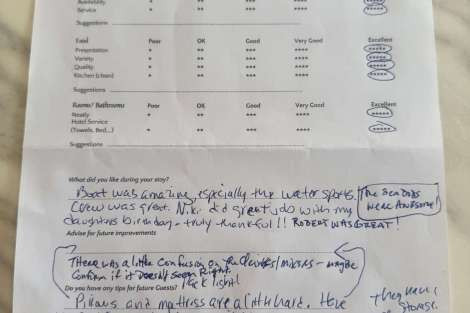 Availability
Service * ** *** **** *****
Suggestions
Food Poor OK Good Very Good Excellent
Presentation * ** *** **** *****
Variety * ** *** **** *****
Quality * ** *** **** *****
Kitchen Island * ** *** **** *****
Suggestions
Rooms/ Bathrooms Poor OK Good Very Good Excellent
Neatly * ** *** **** *****
Hotel Service
(Towels, Bed...) * ** *** **** *****
Suggestions
What did you like during your stay?
Boat was amazing, especially the water sports. The Sea Dogs
Crew was great. Niki did great job with my were AWESOME!
daughters birthday - truly thankful!! ROBERT WAS GREAT!
Advise for future improvements
There was a little confusion on the / mixers - maybe
confirm if it doesn't seem right.
Do you have any tips for future Guests? Pack light!
Pillows and mattress are a little hard. Have
They have
storage.